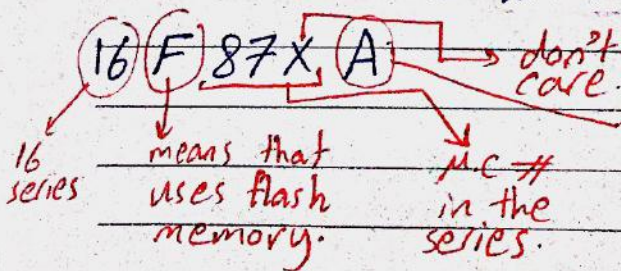 16 F 87X A
don't
care.
16
series
means that
uses flash
memory.
M.C #
in the
series.